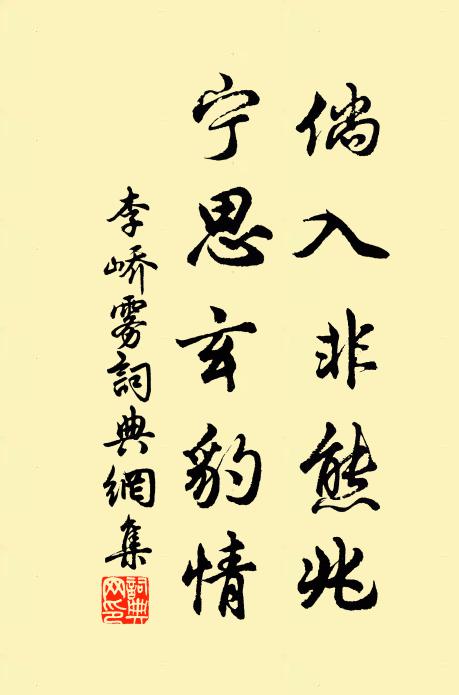 倘入非熊兆
宁思玄豹情
李峤雾詞典網集
詞典網印